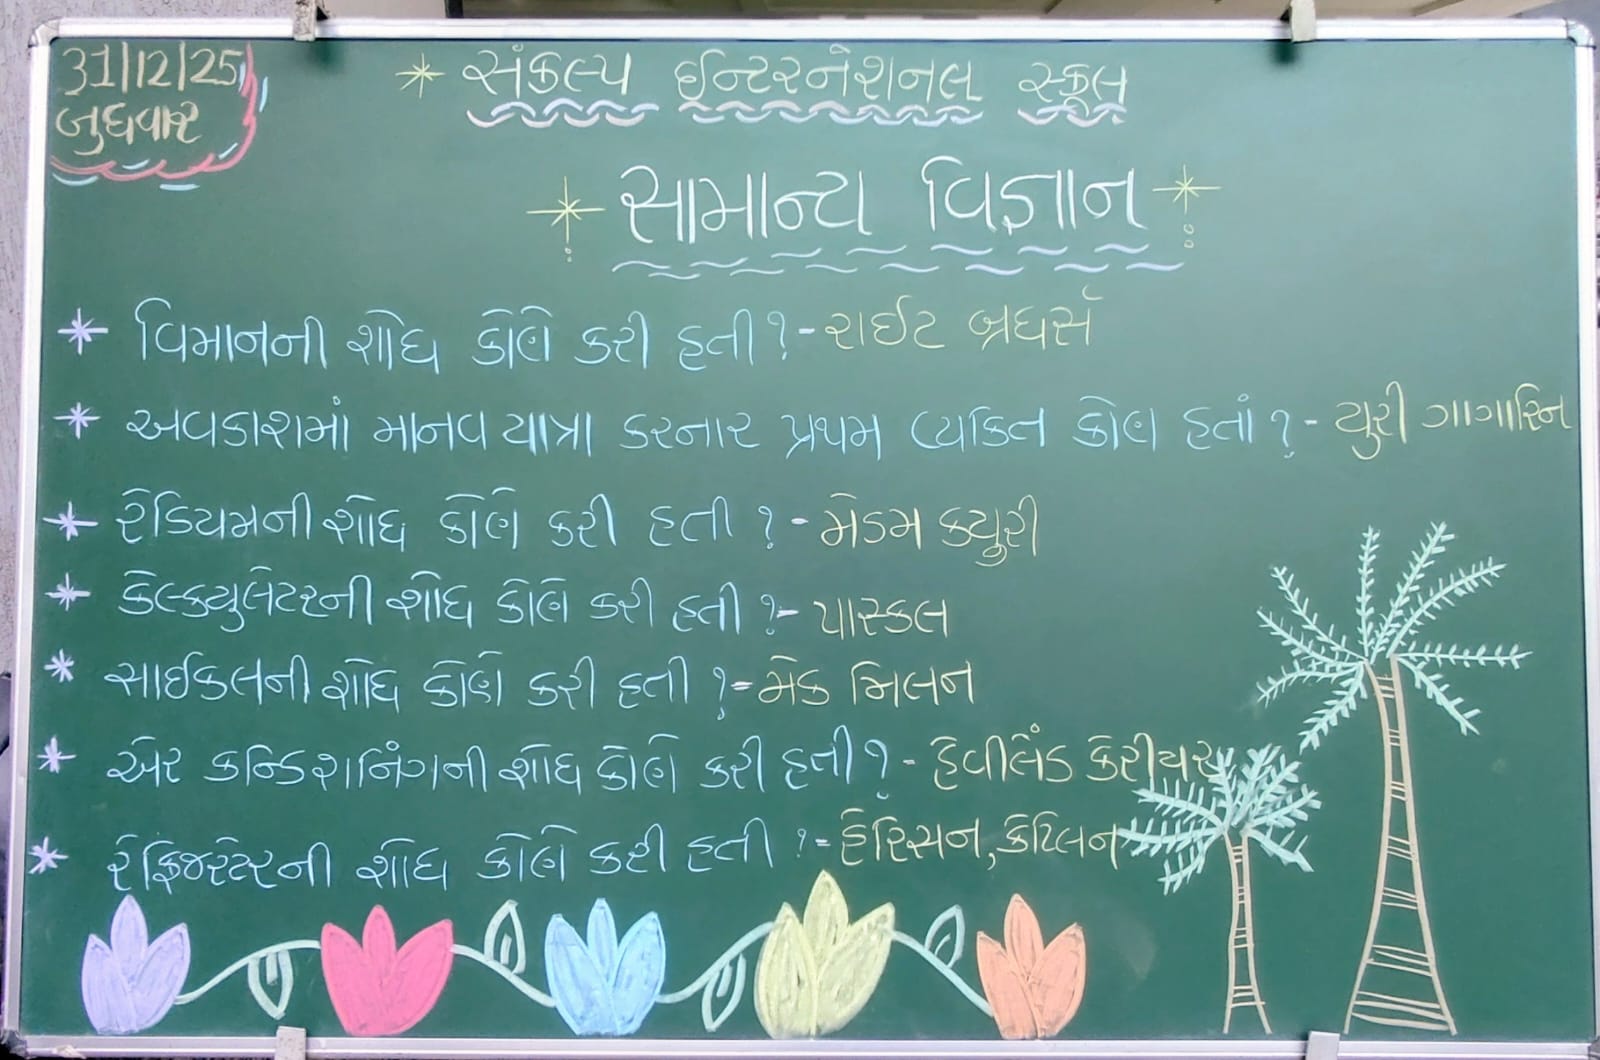 31/12/25
બુધવાર
* સંકલ્પ ઈન્ટરનેશનલ સ્કૂલ
સામાન્ય વિજ્ઞાન
* વિમાનની શોધ કોણે કરી હતી ? - રાઈટ બ્રધર્સ
* અવકાશમાં માનવ યાત્રા કરનાર પ્રથમ વ્યકિત કોણ હતાં ? - યુરી ગાગારિન
* રેડિયમની શોધ કોણે કરી હતી ? - મેડમ ક્યુરી
* કેલ્કયુલેટરની શોધ કોણે કરી હતી ? - પાસ્કલ
* સાઈકલની શોધ કોણે કરી હતી ? - મેક મિલન
* એર કન્ડિશનિંગની શોધ કોણે કરી હતી ? - હેવીલેંડ કેરીયર
* રેફ્રિજરેટરની શોધ કોણે કરી હતી ? - હેરિસન, કેટિલન